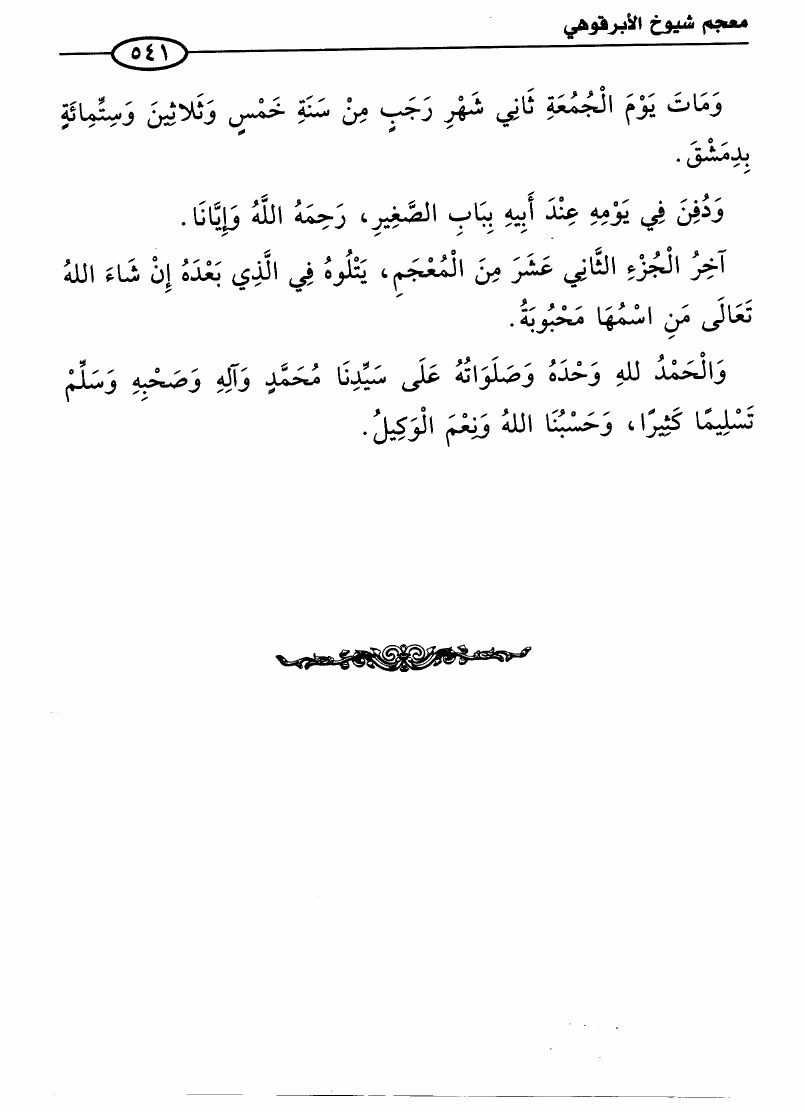 معجم شيوخ الأبرقوهي
٥٤١
وَمَاتَ يَوْمَ الْجُمُعَةِ ثَانِي شَهْرِ رَجَبٍ مِنْ سَنَةِ خَمْسٍ وَثَلَاثِينَ وَسِتِّمِائَةٍ
بِدِمَشْقَ.
وَدُفِنَ فِي يَوْمِهِ عِنْدَ أَبِيهِ بِبَابِ الصَّغِيرِ، رَحِمَهُ اللَّهُ وَإِيَّانَا.
آخِرُ الْجُزْءِ الثَّانِي عَشَرَ مِنَ الْمُعْجَمِ، يَتْلُوهُ فِي الَّذِي بَعْدَهُ إِنْ شَاءَ اللهُ
تَعَالَى مَنِ اسْمُهَا مَحْبُوبَةُ.
وَالْحَمْدُ للهِ وَحْدَهُ وَصَلَوَاتُهُ عَلَى سَيِّدِنَا مُحَمَّدٍ وَآلِهِ وَصَحْبِهِ وَسَلِّمْ
تَسْلِيمًا كَثِيرًا، وَحَسْبُنَا اللهُ وَنِعْمَ الْوَكِيلُ.